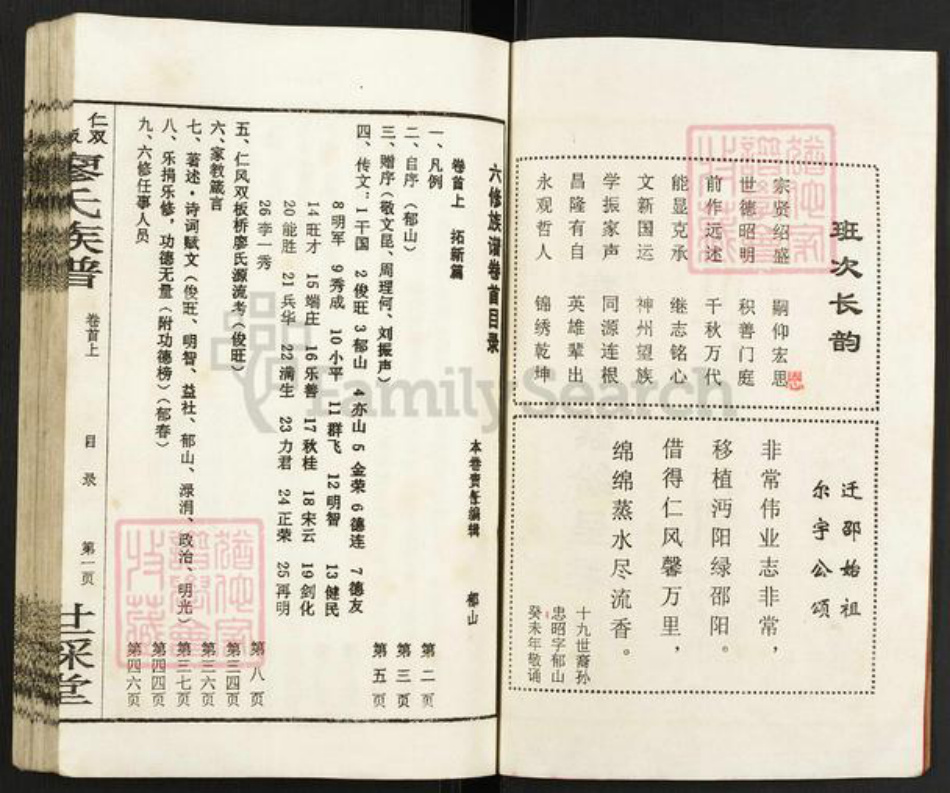 班次长韵
宗贤绍盛 嗣仰宏思
世德昭明 积善门庭
前作远述 千秋万代
能显克承 继志铭心
文新国运 神州望族
学振家声 同源连根
昌隆有自 英雄辈出
永观哲人 锦绣乾坤
迁邵始祖
尔宇公颂
非常伟业志非常，
移植沔阳绿邵阳。
借得仁风馨万里，
绵绵蒸水尽流香。
十九世裔孙
忠昭字郁山
癸未年敬诵
六修族谱卷首目录
本卷责任编辑 郁山
卷首上 拓新篇
一、凡例 第二页
二、自序（郁山） 第三页
三、赠序（敬文昆、周理何、刘振声） 第五页
四、传文：1干国 2俊旺 3郁山 4亦山 5金荣 6德连 7德友
8明军 9秀成 10小平 11群飞 12明智 13健民
14旺才 15端庄 16乐善 17秋桂 18宋云 19剑化
20能胜 21兵华 22满生 23力君 24正荣 25再明
26李一秀 第八页
五、仁风双板桥廖氏源流考（俊旺） 第三四页
六、家教箴言 第三六页
七、著述·诗词赋文（俊旺、明智、益社、郁山、渌涓、政治、明光） 第三七页
八、乐捐乐修，功德无量（附功德榜）（郁春） 第四四页
九、六修任事人员 第四六页
仁双
廖氏族谱
卷首上
目录
第一页
FamilySearch